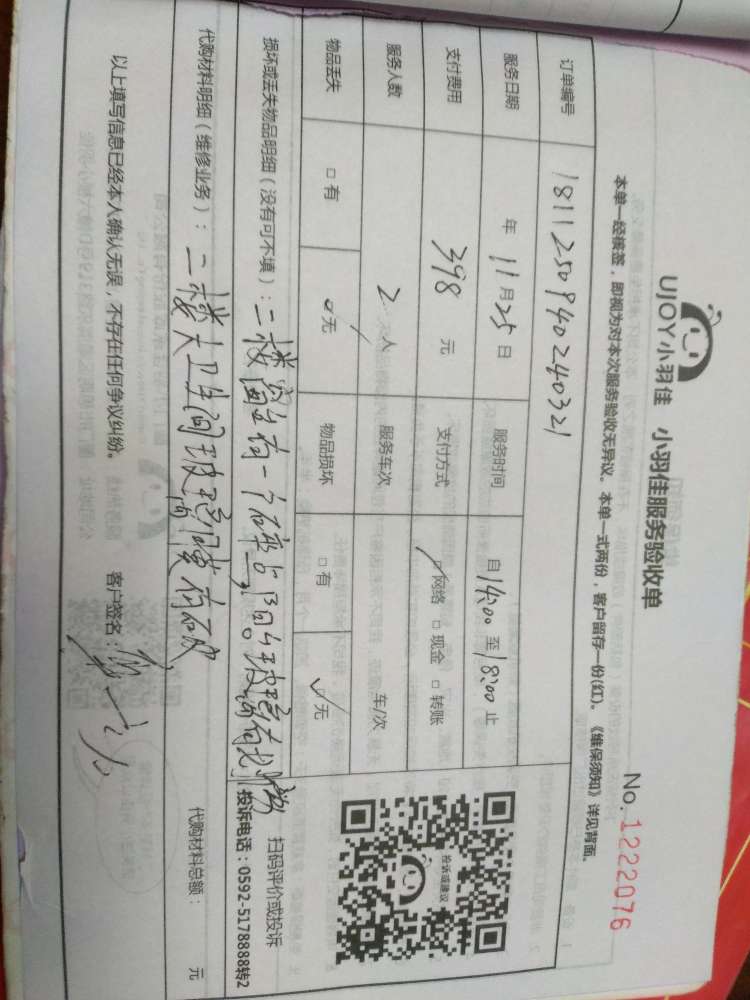 UJOY小羽佳 小羽佳服务验收单
No. 1222076
本单一经核签，即视为对本次服务验收无异议。本单一式两份，客户留存一份(红)。《维保须知》详见背面。
订单编号 1811250940240321
服务日期 年 11月25日 服务时间 自14:00 至 18:00 止
支付费用 398 元 支付方式 ☑网络 □现金 □转账
服务人数 2 人 服务车次 车/次
物品丢失 □有 ☑无 物品损坏 □有 ☑无
投诉或建议
损坏或丢失物品明细（没有可不填）：二楼窗户有一个破点 阳台玻璃有划痕
扫码评价或投诉
投诉电话：0592-5178888转2
代购材料明细（维修业务）：二楼大卫生间玻璃隔膜有破
代购材料总额： 元
以上填写信息已经本人确认无误，不存在任何争议纠纷。 客户签名：